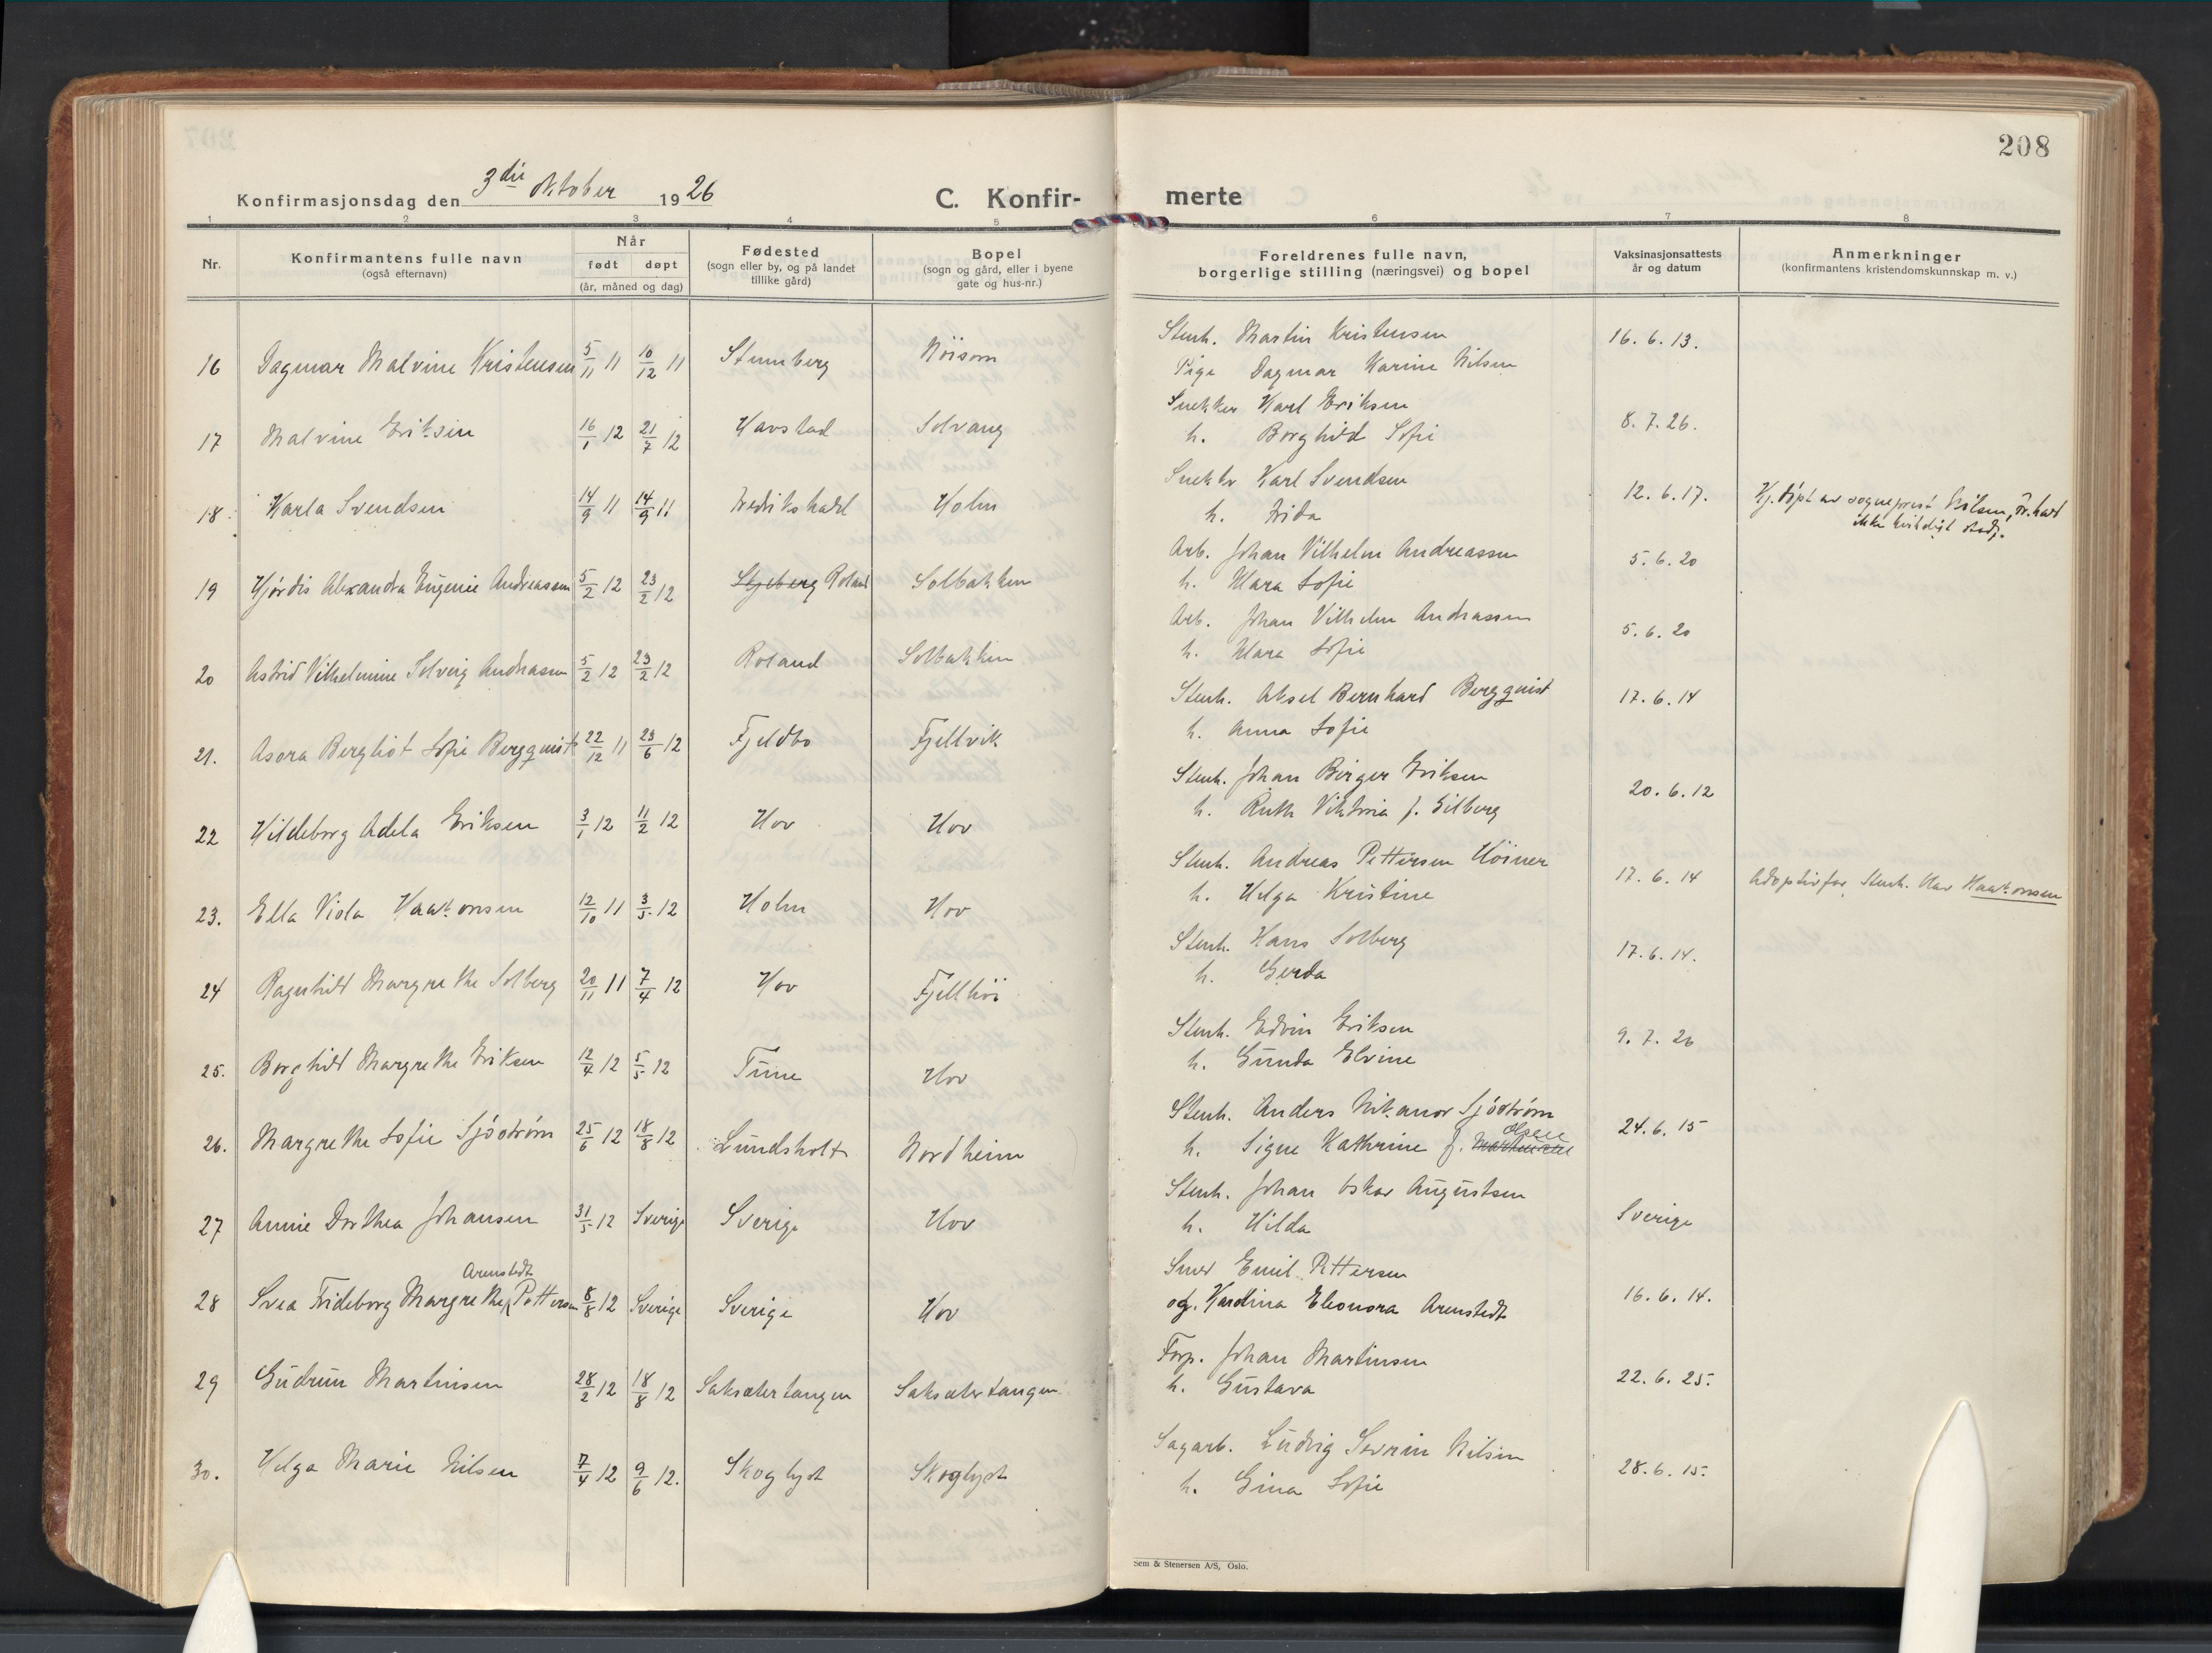 208
Konfirmasjonsdag den 3die Oktober 1926
C. Konfir-
merte
1 2 3 4 5 6 7 8
Nr.
Konfirmantens fulle navn
(også efternavn)
Når
født døpt
(år, måned og dag)
Fødested
(sogn eller by, og på landet
tillike gård)
Bopel
(sogn og gård, eller i byene
gate og hus-nr.)
Foreldrenes fulle navn,
borgerlige stilling (næringsvei) og bopel
Vaksinasjonsattests
år og datum
Anmerkninger
(konfirmantens kristendomskunnskap m. v.)
16 Dagmar Malvine Kristensen 5/11 11 10/12 11 Stumberg Nöisom
Stenh. Martin Kristensen 16.6.13.
Pige Dagmar Karine Nilsen
17 Malvine Eriksen 16/1 12 21/7 12 Havstad Solvang
Snekker Karl Eriksen 8.7.26.
h. Borghild Sofie
18. Karla Svendsen 14/9 11 14/9 11 Fredrikshald Holm
Snekker Karl Svendsen 12.6.17. Hj. døpt av sogneprest Nilsen, Fr.hald
h. Frida ikke
19 Hjørdis Alexandra Eugenie Andreassen 5/2 12 23/2 12 Skjeberg Roland Solbakken
Arb. Johan Vilhelm Andreassen 5.6.20
h. Klara Sofie
20 Astrid Vilhelmine Solveig Andreassen 5/2 12 23/2 12 Roland Solbakken
Arb. Johan Vilhelm Andreassen 5.6.20
h. Klara Sofie
21. Asora Bergliot Sofie Bergquist 22/12 11 23/6 12 Fjeldbo Fjellvik
Stenh. Aksel Bernhard Bergquist 17.6.14
h. Anna Sofie
22 Hildeborg Adela Eriksen 3/1 12 11/2 12 Hov Hov
Stenh. Johan Birger Eriksen 20.6.12
h. Ruth Viktoria f. Gilberg
23. Ella Viola Haakonsen 12/10 11 3/5 12 Holm Hov
Stenh. Andreas Pettersen Höiner 17.6.14 Adoptivfar Stenh. Olav Haakonsen
h. Helga Kristine
24 Ragnhild Margrethe Solberg 20/11 11 7/4 12 Hov Fjellhöi
Stenh. Hans Solberg 17.6.14.
h. Gerda
25. Borghild Margrethe Eriksen 12/4 12 5/5 12 Tune Hov
Stenh. Edvin Eriksen 9.7.26
h. Gunda Elvine
26. Margrethe Sofie Sjöström 25/6 12 18/8 12 Lundsholt Nordheim
Stenh. Anders Nikanor Sjöström 24.6.15
h. Signe Kathrine f. Martinsen Olsen
27 Annie Dorthea Johansen 31/5 12 Sverige Sverige Hov
Stenh. Johan Oskar Augustsen Sverige
h. Hilda
28 Svea Frideborg Margrethe Arenstedt Pettersen 8/8 12 Sverige Sverige Hov
Smed Emil Pettersen 16.6.14.
og. Kardina Eleonora Arenstedt
29 Gudrun Martinsen 28/2 12 18/8 12 Saksætertangen Saksætertangen
Forp. Johan Martinsen 22.6.25.
h. Gustava
30. Helga Marie Nilsen 7/4 12 9/6 12. Skoglyst Skoglyst
Sagarb. Ludvig Severin Nilsen 28.6.15.
h. Gina Sofie
Sem & Stenersen A/S, Oslo.